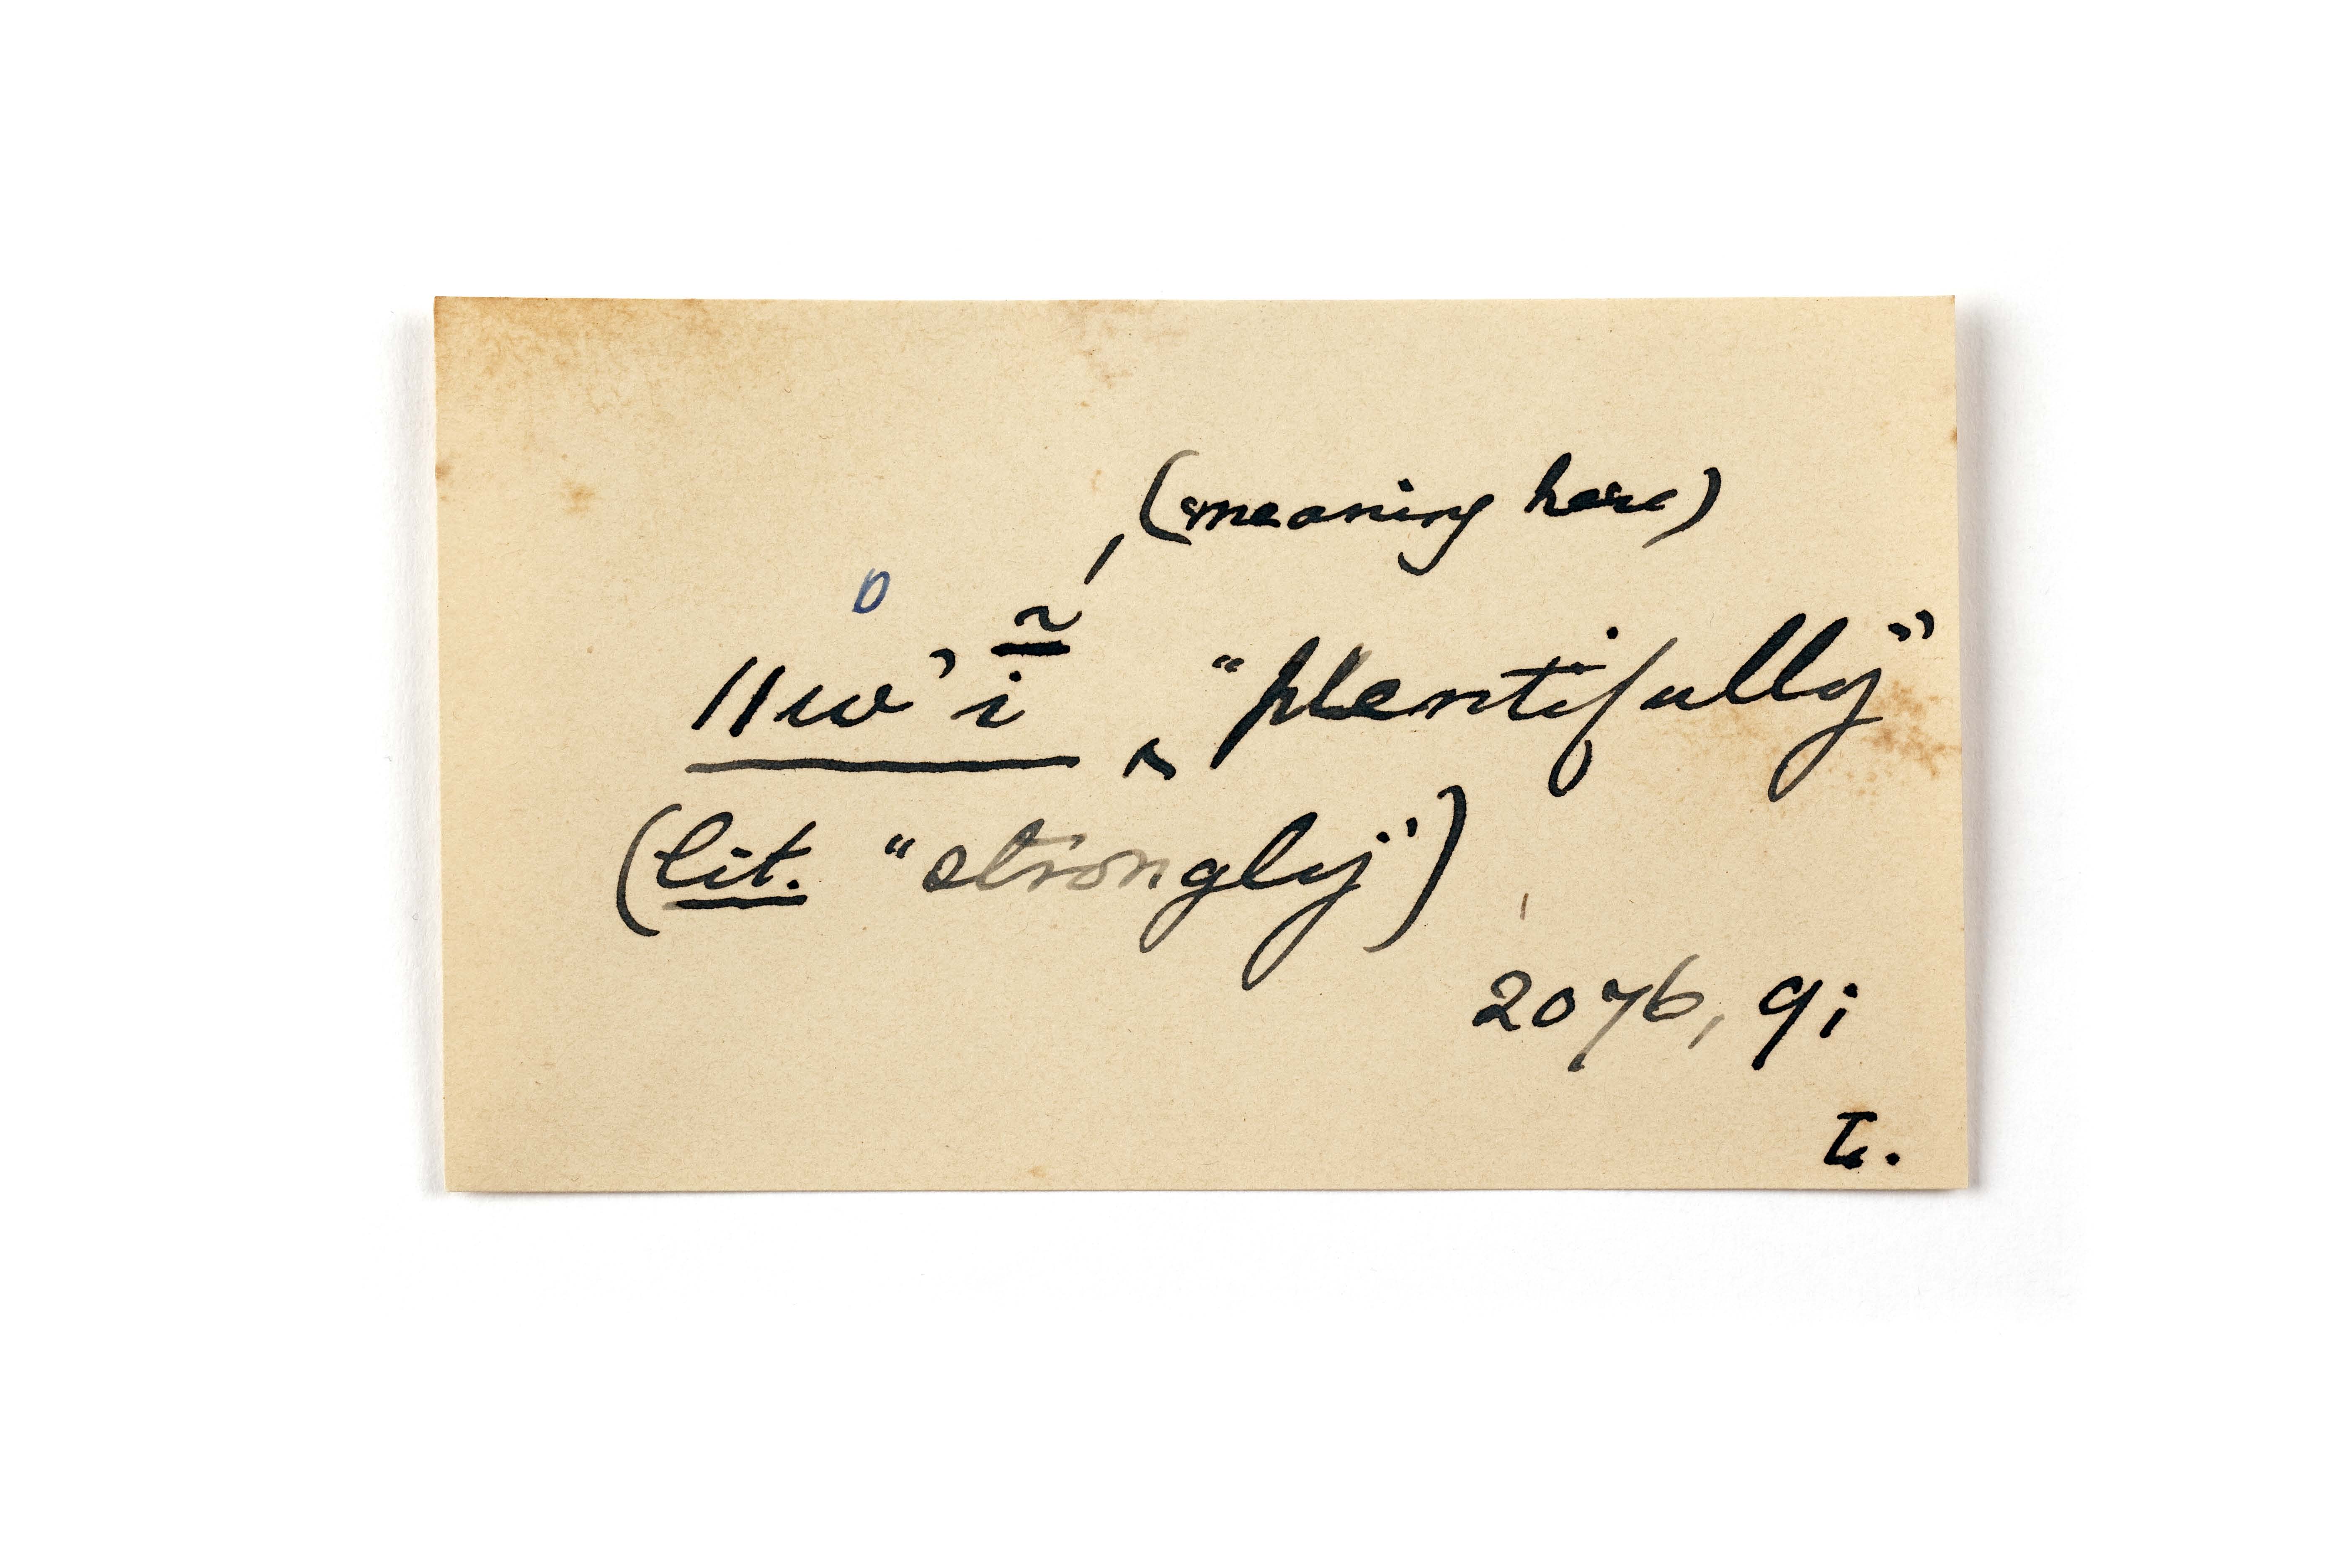 (meaning here)
ǁw'ĩ̱ , "plentifully"
(lit. "strongly")
2076, 9;